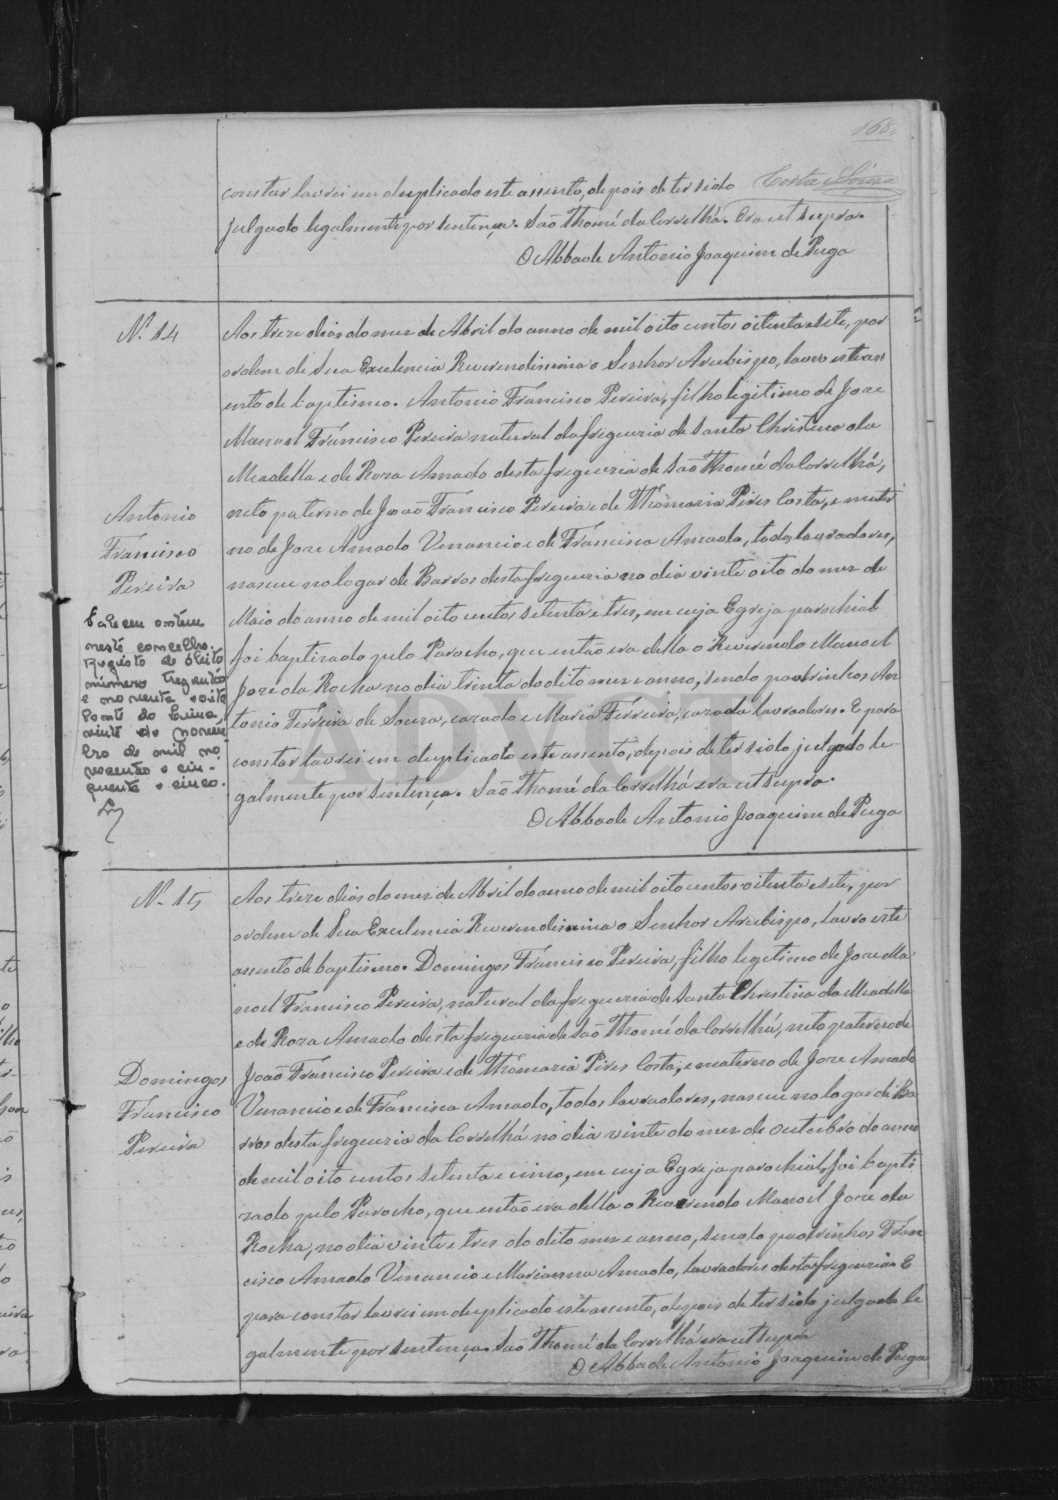 168
Costa Lima
constar lavrei em duplicado este assento, depois de ter sido
julgado legalmente por sentença. São Thomé da Correlhã. Era ut supra.
O Abbade Antonio Joaquim de Puga
N.º 14
Aos treze dias do mez de Abril do anno de mil oito centos oitenta e sete, por
ordem de Sua Excelencia Reverendissima o Senhor Arcebispo, lavro este as
ento de baptismo. Antonio Francisco Pereira, filho legitimo de Joze
Manoel Francisco Pereira natural da freguezia de Santa Christina da
Meadella e de Roza Amado desta freguezia de São Thomé da Correlhã,
neto paterno de João Francisco Pereira e de Thomazia Pires Costa, e mater
no de Joze Amado Venancio e de Francisca Amado, todos lavradores,
nasceu no logar de Barros desta freguezia no dia vinte oito do mez de
Maio do anno de mil oito centos setenta e tres, em cuja Egreja parochial
foi baptizado pelo Parocho, que então era della o Reverendo Manoel
Joze da Rocha no dia trinta do dito mez e anno, sendo padrinhos An
tonio Ferreira de Souza, cazado e Maria Ferreira, cazada lavradores. E para
constar lavrei em duplicado este assento, depois de ter sido julgado le-
galmente por sentença. São Thomé da Correlhã era ut supra.
O Abbade Antonio Joaquim de Puga
Antonio
Francisco
Pereira
Faleceu ontem
neste concelho.
Registo de óbito
número trezentos
e noventa e oito
Ponte do Lima,
vinte de novem
bro de mil no
vecentos e cin-
quenta e cinco.
N.º 15
Aos treze dias do mez de Abril do anno de mil oito centos oitenta e sete, por
ordem de Sua Excelencia Reverendissima o Senhor Arcebispo, lavro este
assento de baptismo. Domingos Francisco Pereira, filho legitimo de Joze Ma
noel Francisco Pereira, natural da freguezia de Santa Christina da Meadella
e de Roza Amado desta freguezia de São Thomé da Correlhã, neto paterno de
João Francisco Pereira e de Thomazia Pires Costa, e materno de Joze Amado
Venancio e de Francisca Amado, todos lavradores, nasceu no logar de Ba
rros desta freguezia da Correlhã no dia vinte do mez de outubro do anno
de mil oito centos setenta e cinco, em cuja Egreja parochial, foi bapti
zado pelo Parocho, que então era della o Reverendo Manoel Joze da
Rocha, no dia vinte e tres do dito mez e anno, sendo padrinhos Fran
cisco Amado Venancio e Marianna Amado, lavradores desta freguezia. E
para constar lavrei em duplicado este assento, depois de ter sido julgado le
galmente por sentença. São Thomé da Correlhã era ut supra
O Abbade Antonio Joaquim de Puga
Domingos
Francisco
Pereira